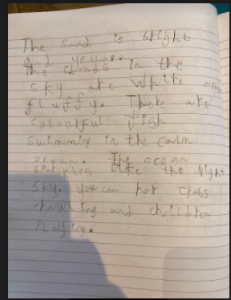 The sand is bright
and yellow.
The clouds in the
sky are white and
fluffy. There are
colourful fish
swimming in the calm
ocean. The ocean
like the night
sky. You can
and children
playing.